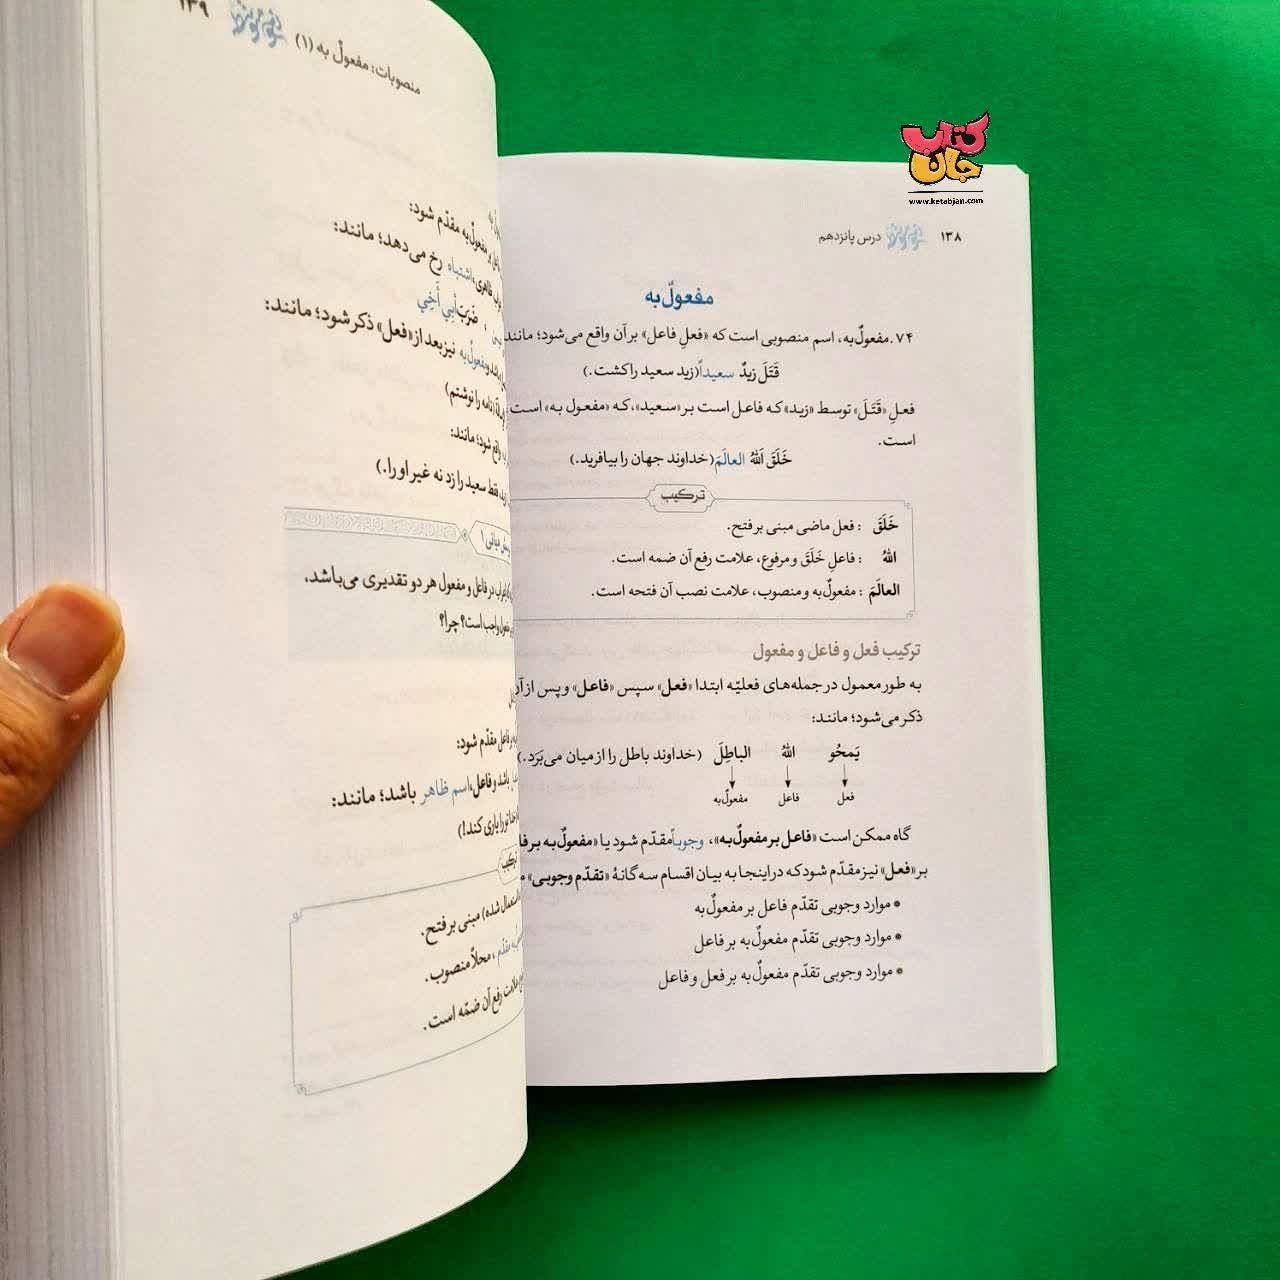 کتاب جان
www.ketabjan.com
۱۳۸ درس پانزدهم
مفعولٌ‌به
۷۴. مفعولٌ‌به، اسم منصوبی است که «فعلِ فاعل» بر آن واقع می‌شود؛ مانند
قَتَلَ زیدٌ سعیداً (زید سعید را کشت.)
فعلِ «قَتَلَ» توسط «زید» که فاعل است بر «سعید»، که «مفعول به» است
است.
خَلَقَ اللهُ العالَمَ (خداوند جهان را بیافرید.)
ترکیب
خَلَقَ : فعل ماضی مبنی بر فتح.
اللهُ : فاعلِ خَلَقَ و مرفوع، علامت رفع آن ضمه است.
العالَمَ : مفعولٌ‌به و منصوب، علامت نصب آن فتحه است.
ترکیب فعل و فاعل و مفعول
به طور معمول در جمله‌های فعلیّه ابتدا «فعل» سپس «فاعل» و پس از آن
ذکر می‌شود؛ مانند:
یَمحُو اللهُ الباطِلَ (خداوند باطل را از میان می‌بَرَد.)
فعل فاعل مفعولٌ‌به
گاه ممکن است «فاعل بر مفعولٌ‌به»، وجوباً مقدّم شود یا «مفعولٌ‌به بر
بر «فعل» نیز مقدّم شود که در اینجا به بیان اقسام سه گانهٔ «تقدّم وجوبی»
* موارد وجوبی تقدّم فاعل بر مفعولٌ‌به
* موارد وجوبی تقدّم مفعولٌ‌به بر فاعل
* موارد وجوبی تقدّم مفعولٌ‌به بر فعل و فاعل
منصوبات: مفعولٌ به (۱) ۱۳۹
بر مفعولٌ‌به مقدّم شود:
ظاهری، اشتباه رخ می‌دهد؛ مانند:
، ضَرَبَ أبي أَخِي
و مفعولٌ‌به نیز بعد از «فعل» ذکر شود؛ مانند:
نامه را نوشتم)
واقع شود؛ مانند:
فقط سعید را زد نه غیر او را.)
در فاعل و مفعول هر دو تقدیری می‌باشد،
واجب است؟ چرا؟
بر فاعل مقدّم شود:
باشد و فاعل، اسم ظاهر باشد؛ مانند:
را یاری کند!)
ترکیب
استعمال شده) مبنی بر فتح.
مقدّم، محلاً منصوب.
علامت رفع آن ضمّه است.